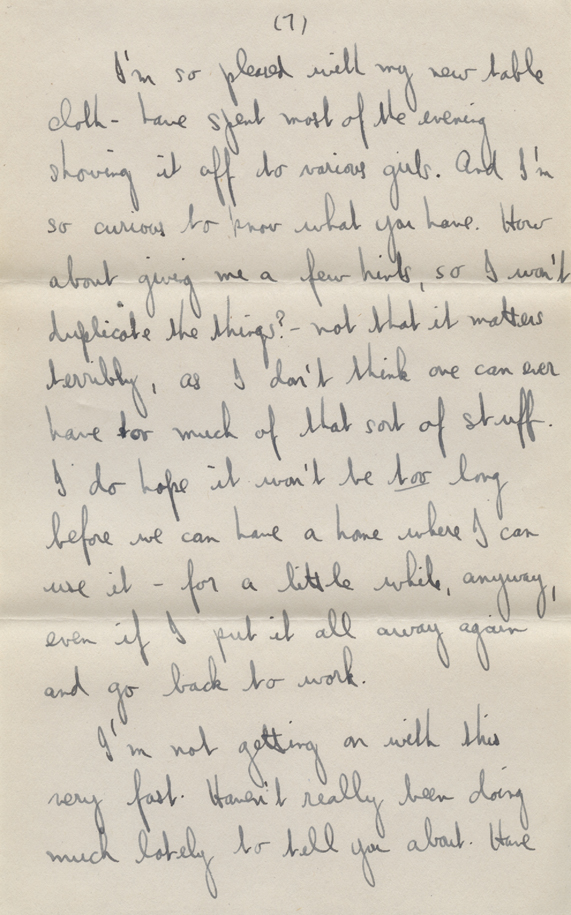 (7)
I'm so pleased with my new table
cloth - have spent most of the evening
showing it off to various girls. And I'm
so curious to know what you have. How
about giving me a few hints, so I won't
duplicate the things? - not that it matters
terribly, as I don't think one can ever
have too much of that sort of stuff.
I do hope it won't be too long
before we can have a home where I can
use it - for a little while, anyway,
even if I put it all away again
and go back to work.
I'm not getting on with this
very fast. Haven't really been doing
much lately to tell you about. Have